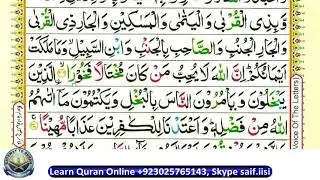 وَّبِذِي الْقُرْبٰى وَ الْيَتٰمٰى وَ الْمَسٰكِيْنِ وَ الْجَارِ ذِي الْقُرْبٰى
وَ الْجَارِ الْجُنُبِ وَ الصَّاحِبِ بِالْجَنْۢبِ وَ ابْنِ السَّبِيْلِ وَ مَا مَلَكَتْ
اَيْمَانُكُمْ اِنَّ اللّٰهَ لَا يُحِبُّ مَنْ كَانَ مُخْتَالًا فَخُوْرَا الَّذِيْنَ
يَبْخَلُوْنَ وَ يَاْمُرُوْنَ النَّاسَ بِالْبُخْلِ وَ يَكْتُمُوْنَ مَاۤ اٰتٰىهُمُ
اللّٰهُ مِنْ فَضْلِهٖ وَ اَعْتَدْنَا لِلْكٰفِرِيْنَ عَذَابًا مُّهِيْنًا
(Voice Of The Letters)
Learn Quran Online +923025765143, Skype saif.iisi